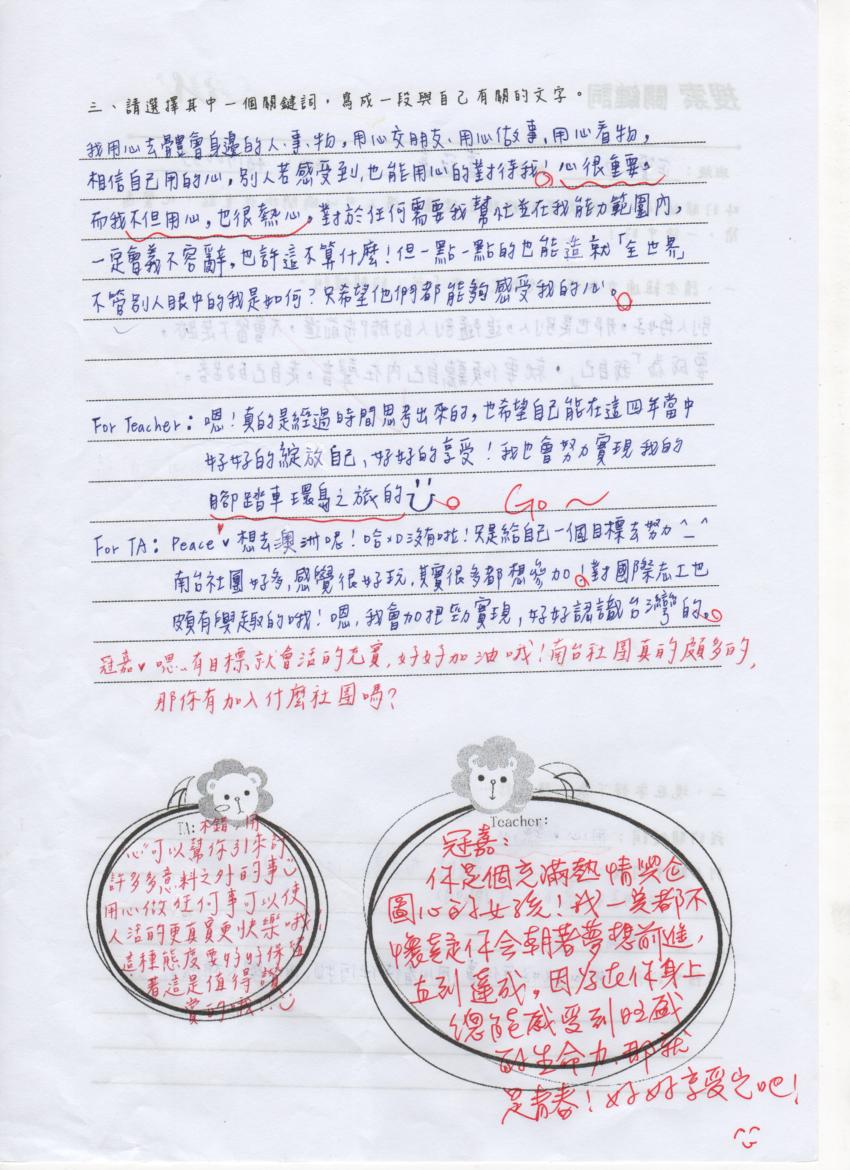 三、請選擇其中一個關鍵詞，寫成一段與自己有關的文字。
我用心去體會身邊的人、事、物，用心交朋友、用心做事、用心看物，
相信自己用的心，別人若感受到，也能用心的對待我！心很重要。
而我不但用心，也很熱心，對於任何需要我幫忙並在我能力範圍內，
一定會義不容辭，也許這不算什麼！但一點一點的也能造就「全世界」
不管別人眼中的我是如何？只希望他們都能夠感受我的心。
For Teacher：嗯！真的是經過時間思考出來的，也希望自己能在這四年當中
好好的綻放自己、好好的享受！我也會努力實現我的
腳踏車環島之旅的
Go～
For TA：Peace♥想去澳洲呢！哈㏄沒有啦！只是給自己一個目標去努力^_^
南台社團好多，感覺很好玩，其實很多都想參加！對國際志工也
頗有興趣的哦！嗯，我會加把勁實現，好好認識台灣的。
冠嘉♥嗯…有目標就會活的充實，好好加油哦！南台社團真的頗多的，
那你有加入什麼社團嗎？
TA：不錯，用
心可以幫你引來許
許多多意料之外的事
用心做任何事可以使
人活的更真實更快樂哦！
這種態度要好好保值
著這是值得讚
賞的哦!!
Teacher：
冠嘉：
你是個充滿熱情與企
圖心的女孩！我一美都不
懷疑你會朝著夢想前進，
直到達成，因為在你身上
總能感受到旺盛
的生命力，那就
是青春！好好享受它吧！